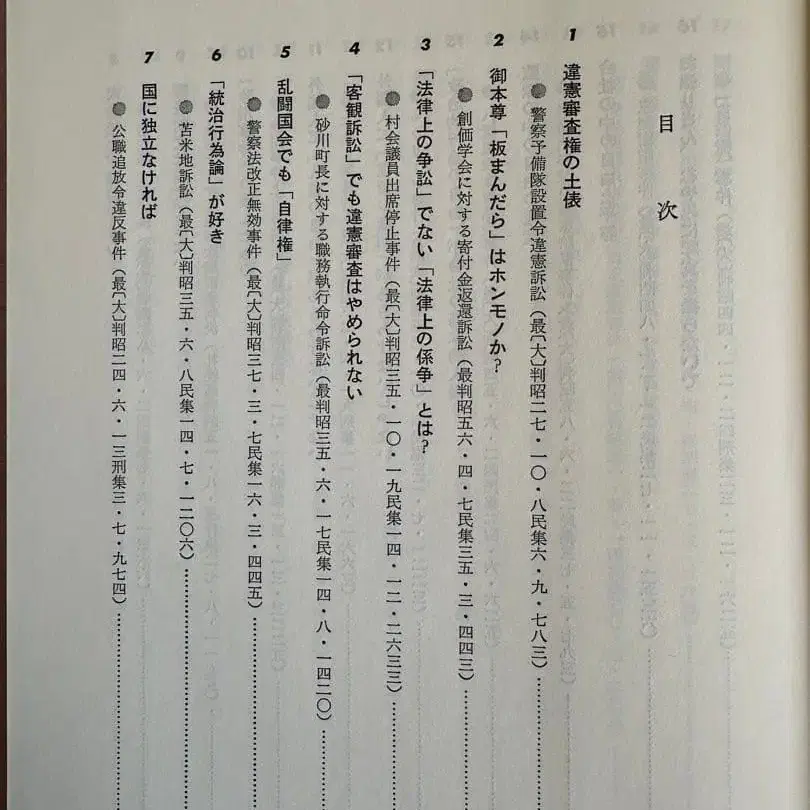 目次
1 違憲審査権の土俵
● 警察予備隊設置令違憲訴訟（最〔大〕判昭二七・一〇・八民集六・九・七八三）
2 御本尊「板まんだら」はホンモノか？
● 創価学会に対する寄付金返還訴訟（最判昭五六・四・七民集三五・三・四四三）
3 「法律上の争訟」でない「法律上の係争」とは？
● 村会議員出席停止事件（最〔大〕判昭三五・一〇・一九民集一四・一二・二六三三）
4 「客観訴訟」でも違憲審査はやめられない
● 砂川町長に対する職務執行命令訴訟（最判昭三五・六・一七民集一四・八・一四二〇）
5 乱闘国会でも「自律権」
● 警察法改正無効事件（最〔大〕判昭三七・三・七民集一六・三・四四五）
6 「統治行為論」が好き
● 苫米地訴訟（最〔大〕判昭三五・六・八民集一四・七・一二〇六）
7 国に独立なければ
● 公職追放令違反事件（最〔大〕判昭二四・六・一三刑集三・七・九七四）